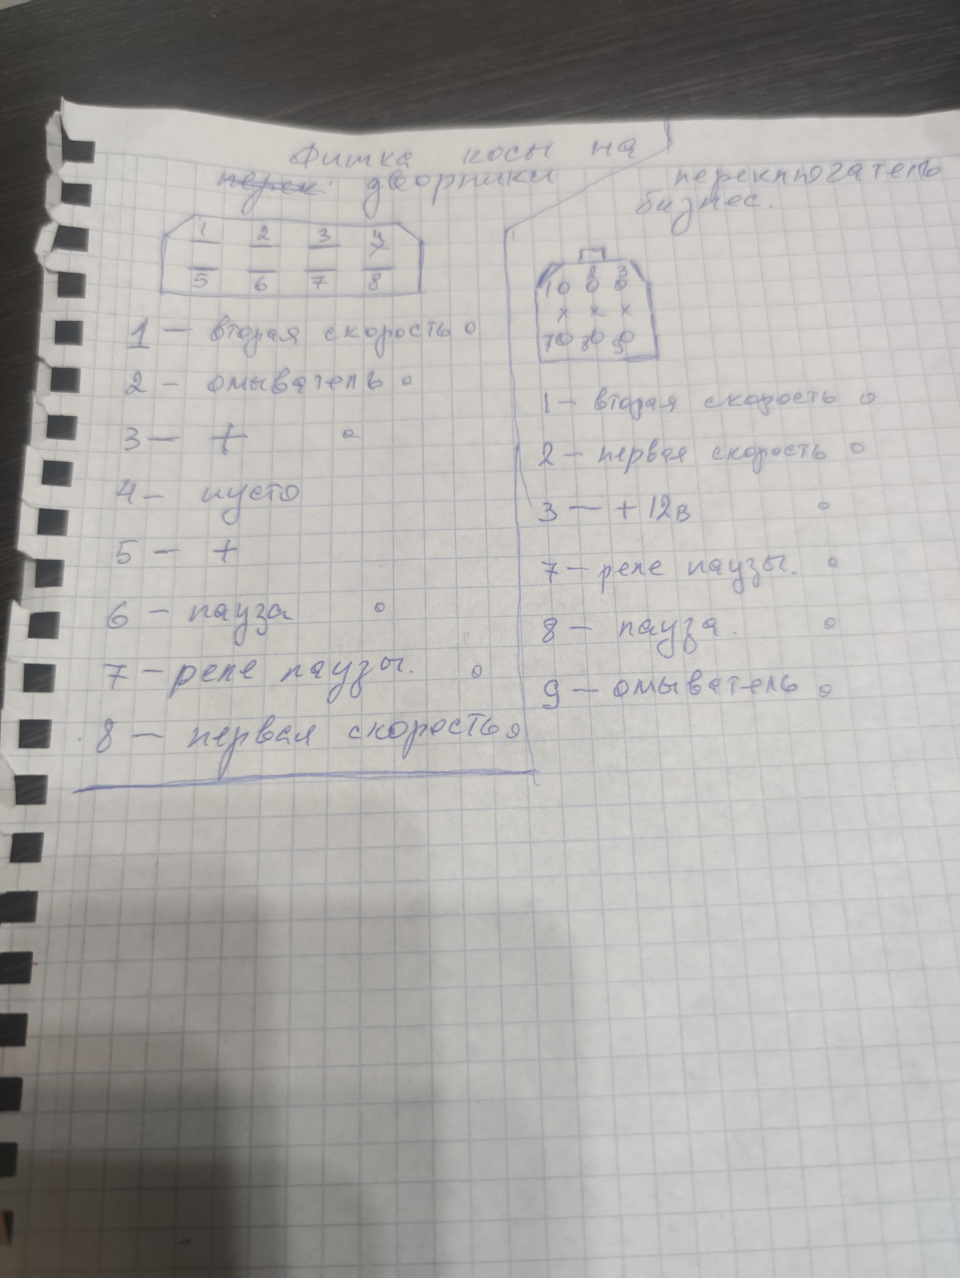 Фишка косы на
перек. дворники
1 2 3 4
5 6 7 8
1 — вторая скорость
2 - омыватель
3 — +
4 - пусто
5 — +
6 — пауза
7 — реле паузы.
8 — первая скорость
переключатель
бизнес.
1 2 3
х х х
7 8 9
1 — вторая скорость
2 — первая скорость
3 — + 12в
7 — реле паузы.
8 — пауза.
9 — омыватель